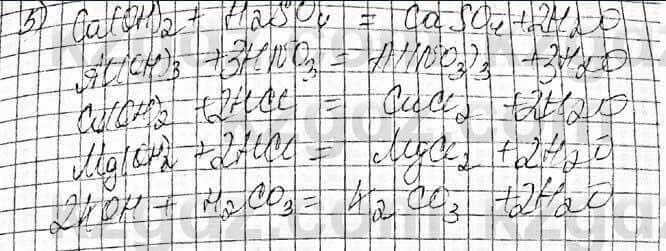 5) Ca(OH)₂ + H₂SO₄ = CaSO₄ + 2H₂O
Al(OH)₃ + 3HNO₃ = Al(NO₃)₃ + 3H₂O
Cu(OH)₂ + 2HCl = CuCl₂ + 2H₂O
Mg(OH)₂ + 2HCl = MgCl₂ + 2H₂O
2KOH + H₂CO₃ = K₂CO₃ + 2H₂O